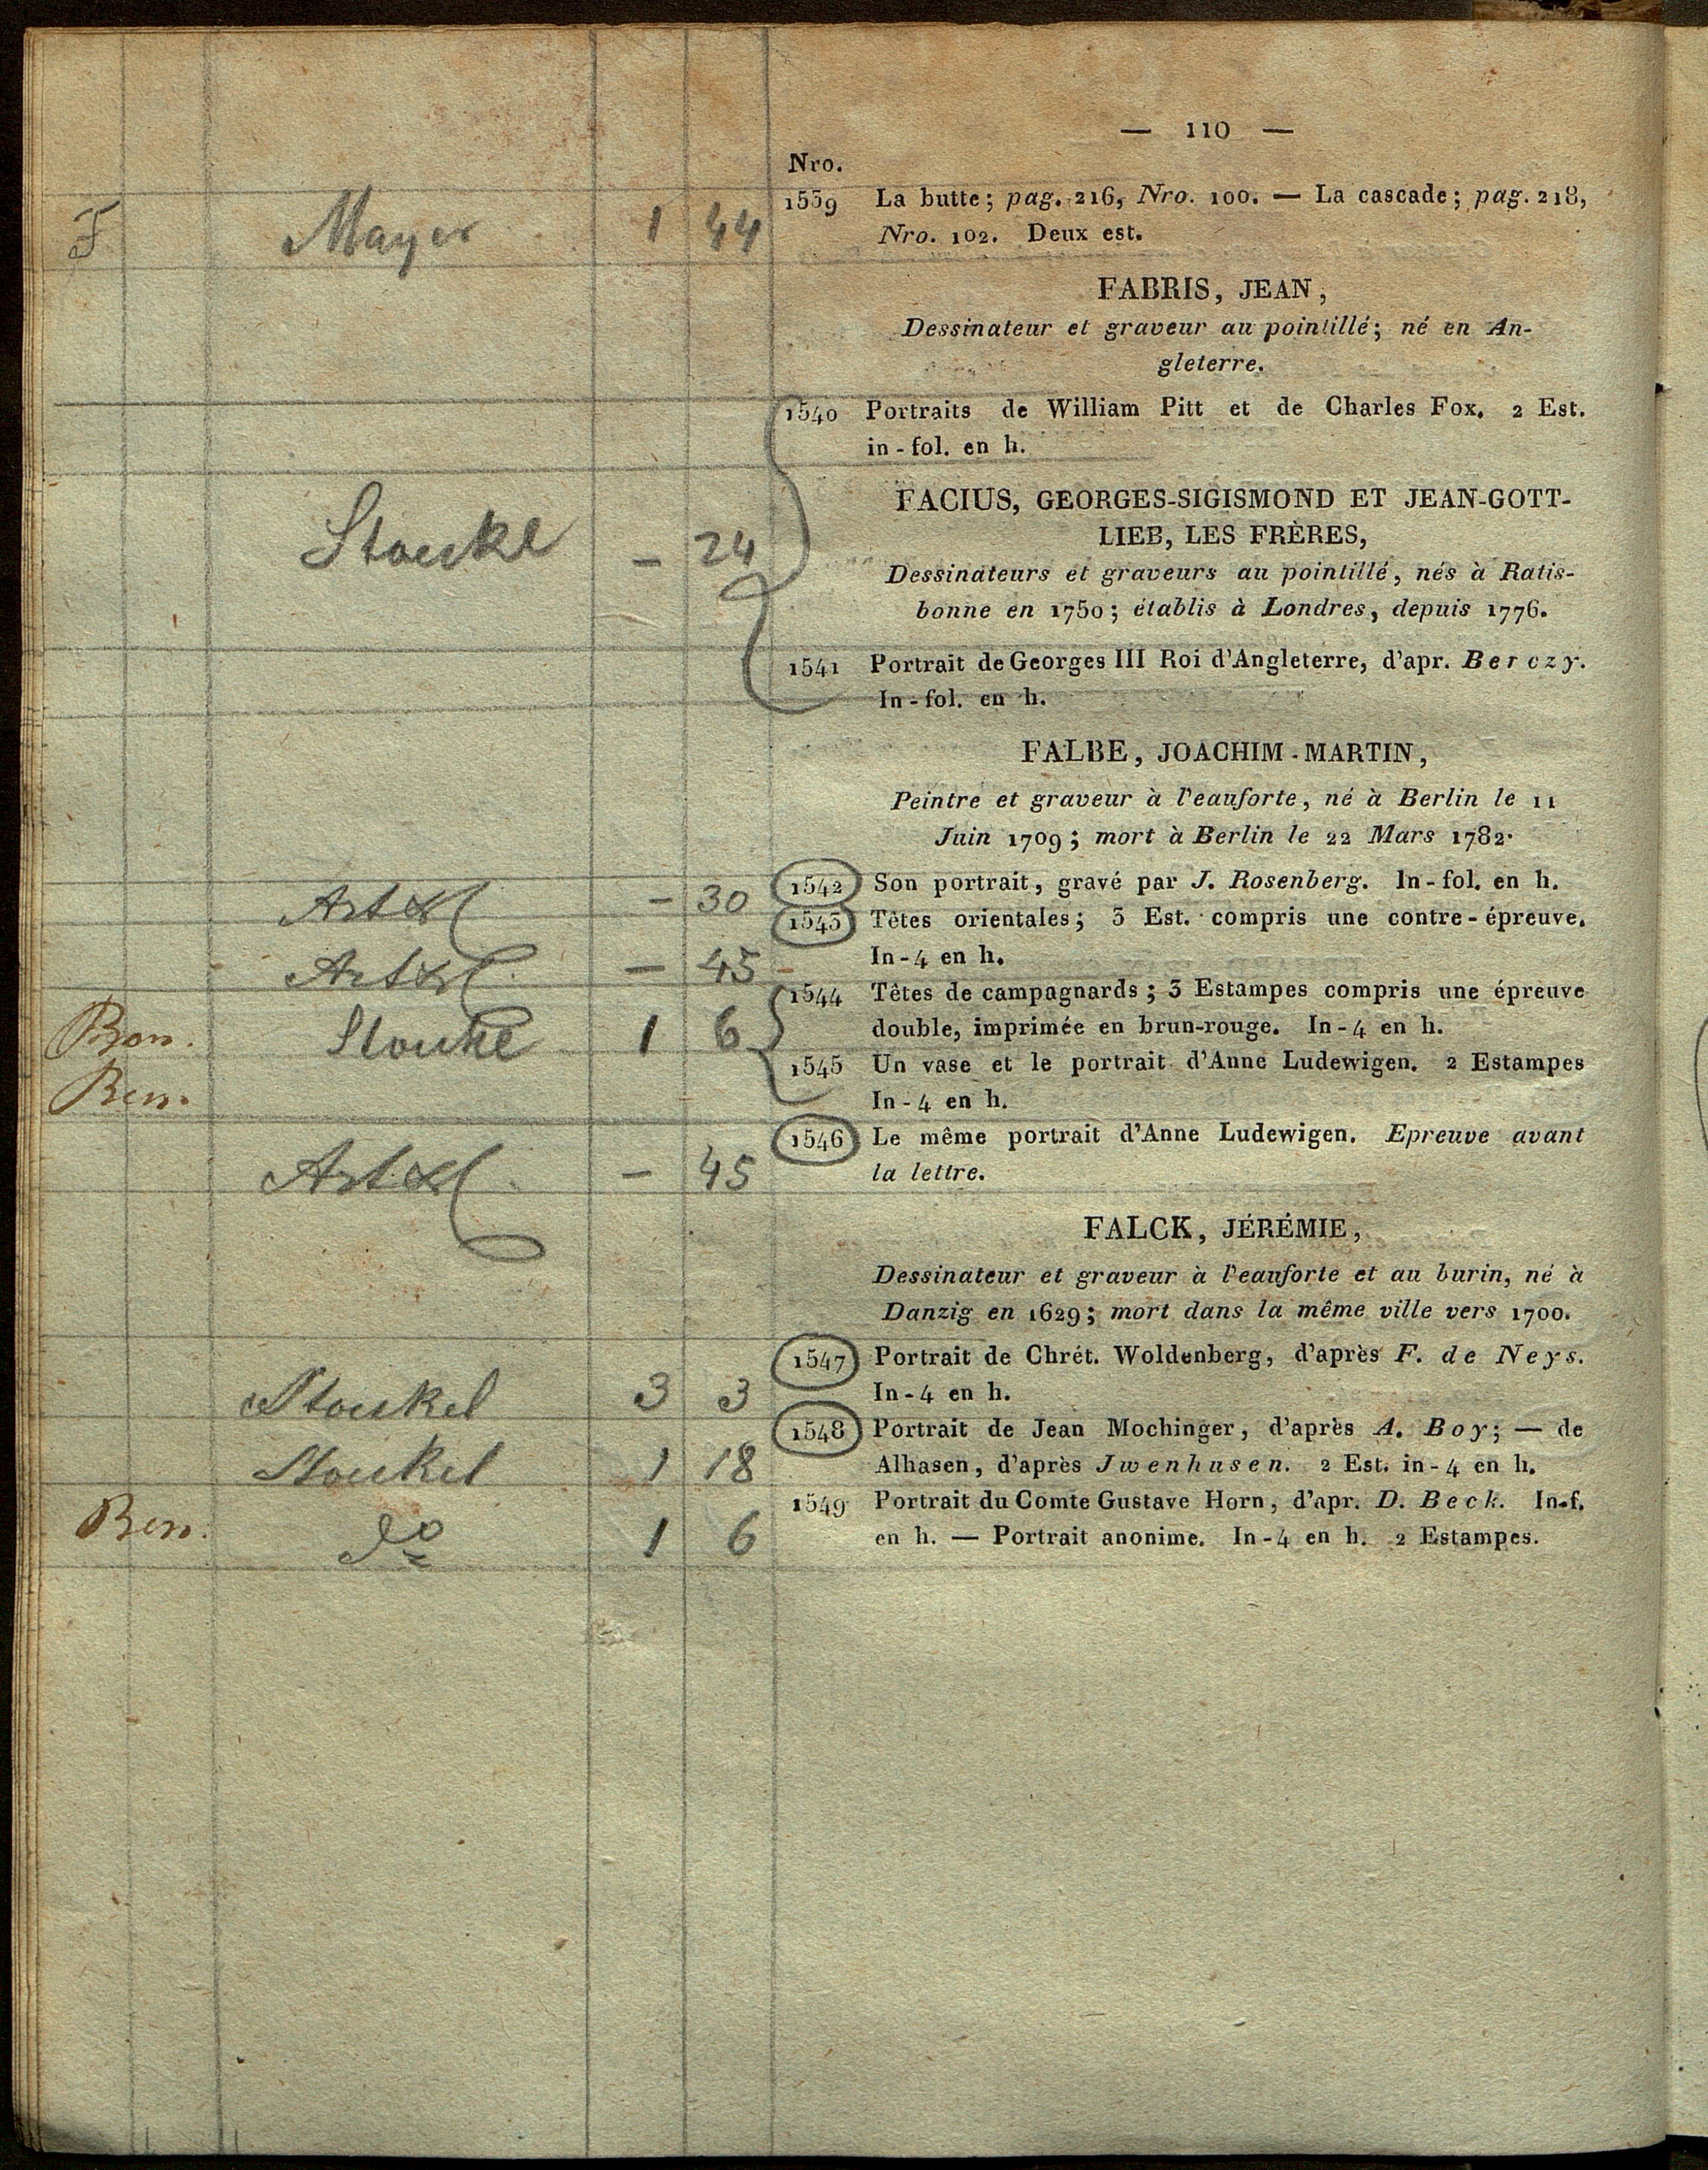 — 110 —
Nro.
F Mayer 1 44
1539 La butte; pag. 216, Nro. 100. — La cascade; pag. 218,
Nro. 102. Deux est.
FABRIS, JEAN,
Dessinateur et graveur au pointillé; né en An-
gleterre.
1540 Portraits de William Pitt et de Charles Fox. 2 Est.
in-fol. en h.
FACIUS, GEORGES-SIGISMOND ET JEAN-GOTT-
LIEB, LES FRÈRES,
— 24
Dessinateurs et graveurs au pointillé, nés à Ratis-
bonne en 1750; établis à Londres, depuis 1776.
1541 Portrait de Georges III Roi d'Angleterre, d'apr. Berczy.
In-fol. en h.
FALBE, JOACHIM-MARTIN,
Peintre et graveur à l'eauforte, né à Berlin le 11
Juin 1709; mort à Berlin le 22 Mars 1782.
— 30
1542 Son portrait, gravé par J. Rosenberg. In-fol. en h.
— 45
1543 Têtes orientales; 3 Est. compris une contre-épreuve.
In-4 en h.
1 6
1544 Têtes de campagnards; 3 Estampes compris une épreuve
double, imprimée en brun-rouge. In-4 en h.
1545 Un vase et le portrait d'Anne Ludewigen. 2 Estampes
In-4 en h.
— 45
1546 Le même portrait d'Anne Ludewigen. Epreuve avant
la lettre.
FALCK, JÉRÉMIE,
Dessinateur et graveur à l'eauforte et au burin, né à
Danzig en 1629; mort dans la même ville vers 1700.
Stoeckel 3 3
1547 Portrait de Chrét. Woldenberg, d'après F. de Neys.
In-4 en h.
1 18
1548 Portrait de Jean Mochinger, d'après A. Boy; — de
Alhasen, d'après Jwenhusen. 2 Est. in-4 en h.
do 1 6
1549 Portrait du Comte Gustave Horn, d'apr. D. Beck. In-f.
en h. — Portrait anonime. In-4 en h. 2 Estampes.